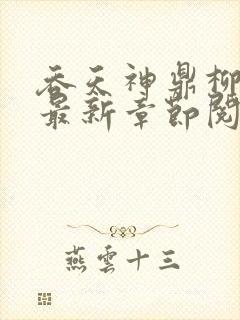 吞天神鼎柳
最新章節閱
燕雲十三